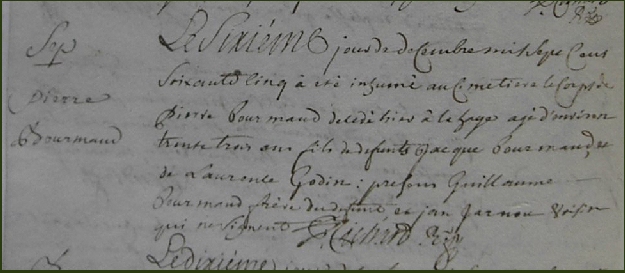 Sep
Pierre
Bourmaud
Le Sixiéme jour de decembre mil Sept Cens
Soixante Cinq à été inhumé au Cimetiere le Corps de
Pierre Bourmaud decedé hier à agé d'environ
trente trois ans fils de defunts Jacque Bourmaud et
de Laurence Godin : presens Guillaume
Bourmaud frère du defunt, et jan voisin
qui ne signent Richard
Le dixiéme jour de